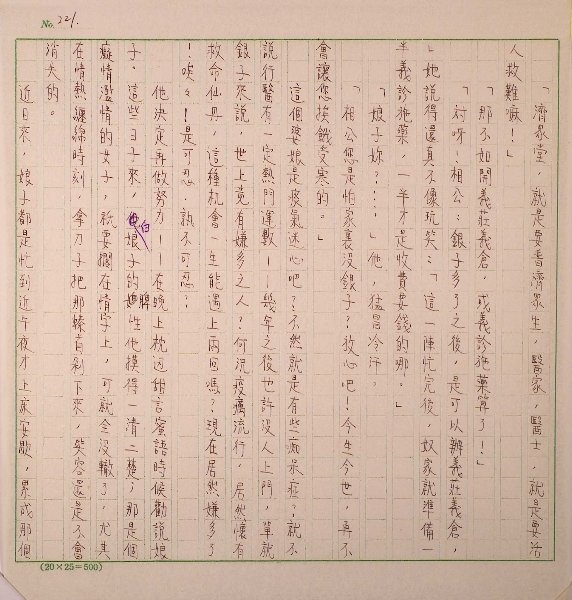 No. 221.
人救難嘛！」
「濟眾堂，就是要普濟眾生，醫家，醫士，就是要活
「那不如開義莊義倉，或義診施藥算了！」
「對呀！相公：銀子多了之後，是可以辦義莊義倉，
」她說得還真不像玩笑：「這一陣忙完後，奴家就準備一
半義診施藥，一半才是收費要錢的哪。」
「娘子妳？……」他，猛冒冷汗，
「相公您是怕家裏沒銀子？放心吧！今生今世，再不
會讓您挨餓受寒的。」
這個婆娘是痰氣迷心吧？不然就是有些癡呆症？就不
說行醫有一定熱門運數——幾年之後也許沒人上門，單就
銀子來說，世上竟有嫌多之人？何況疫癘流行，居然懷有
救命仙丹，這種機會一生能遇上兩回嗎？現在居然嫌多了
！唉々！是可忍，孰不可忍？
他決定再做努力——在晚上枕邊甜言蜜語時候勸說娘
子，這些日子來，白娘子的脾性他摸得一清二楚；那是個
癡情濫情的女子，祇要擱在情字上，可就全沒轍了，尤其
在情熱纏綿時刻，拿刀子把那膀肩剁下來，笑容還是不會
消失的。
近日來，娘子都是忙到近午夜才上床安歇，累成那個
(20×25=500)